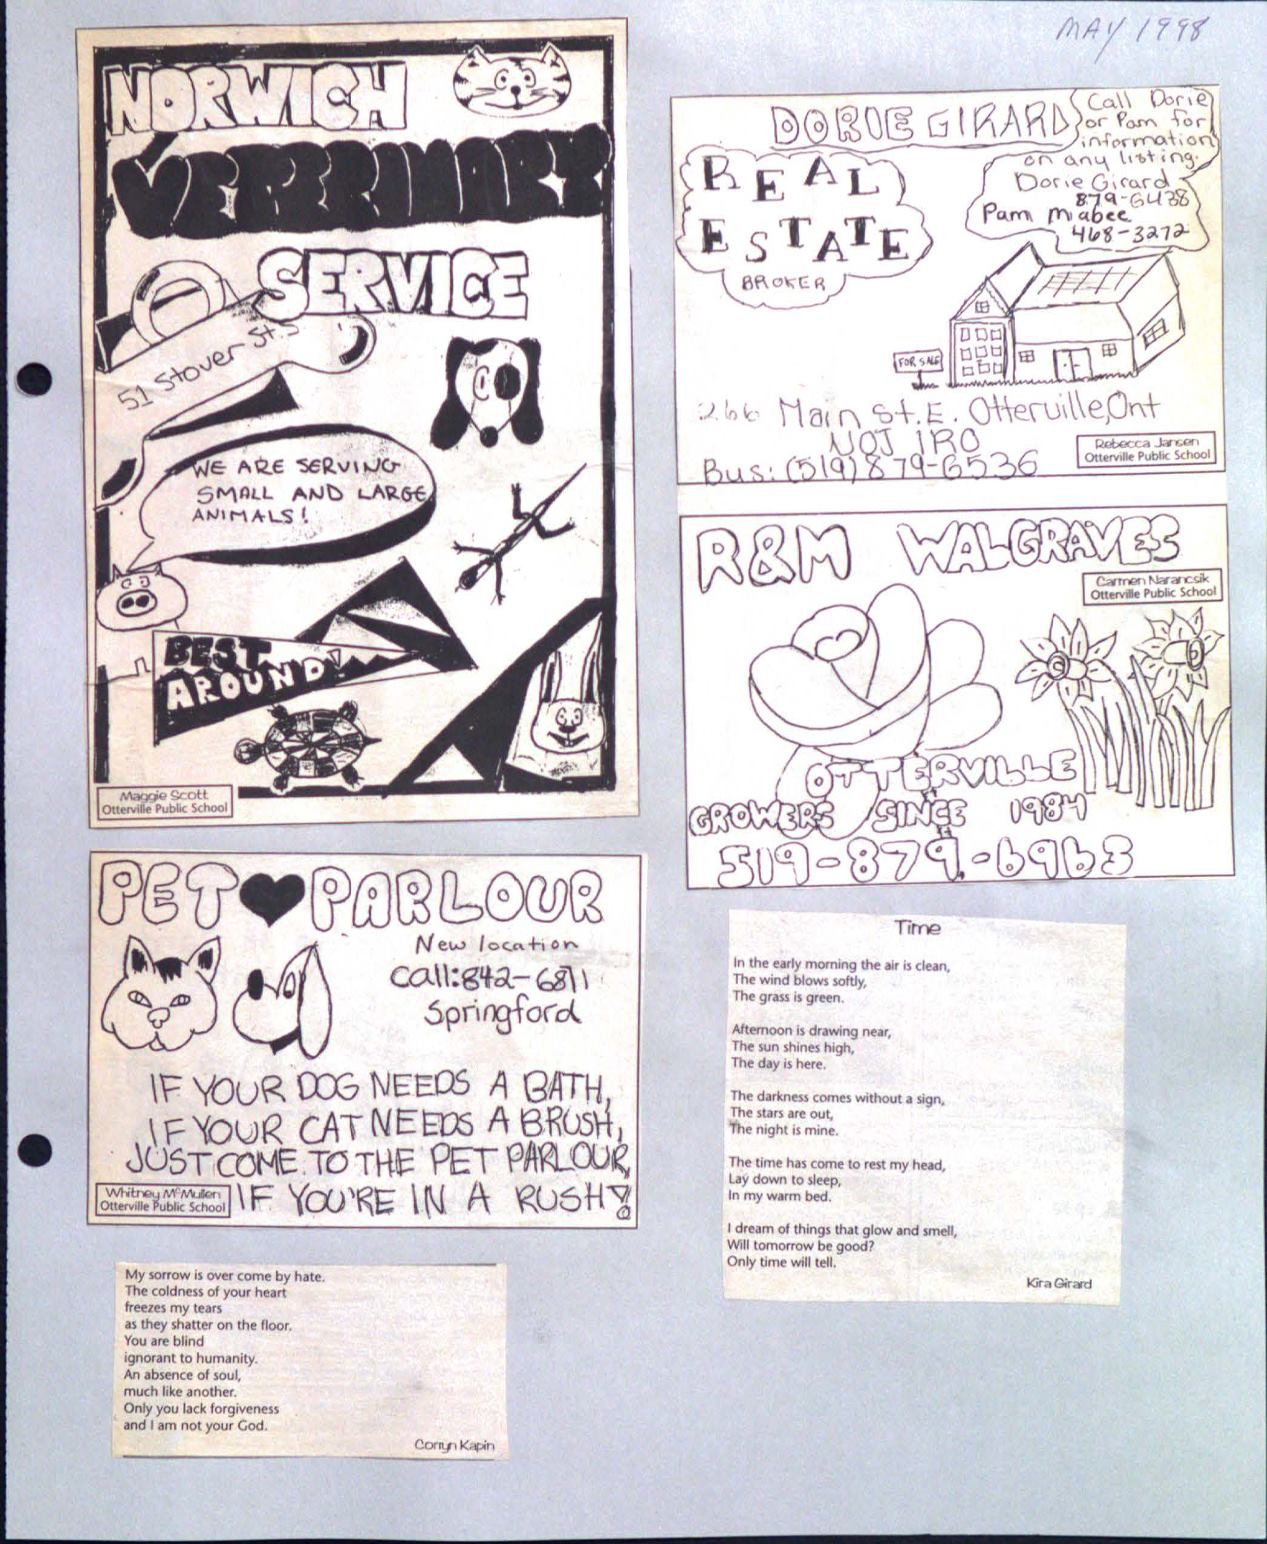 MAY 1998
NORWICH
VETERINARY
SERVICE
51 Stover St. S
WE ARE SERVING
SMALL AND LARGE
ANIMALS!
BEST
AROUND!
Maggie Scott
Otterville Public School
DORIE GIRARD
REAL
ESTATE
BROKER
Call Dorie
or Pam for
information
on any listing.
Dorie Girard
879-6438
Pam Mabee
468-3272
FOR SALE
266 Main St. E. Otterville, Ont
NOJ 1RO
Bus: (519) 879-6536
Rebecca Jansen
Otterville Public School
R&M WALGRAVES
Carmen Narancsik
Otterville Public School
OTTERVILLE
GROWERS SINCE 1984
519-879-6963
PET PARLOUR
New location
Call: 842-6811
Springford
IF YOUR DOG NEEDS A BATH,
IF YOUR CAT NEEDS A BRUSH,
JUST COME TO THE PET PARLOUR,
IF YOU'RE IN A RUSH!
Whitney McMullen
Otterville Public School
Time
In the early morning the air is clean,
The wind blows softly,
The grass is green.
Afternoon is drawing near,
The sun shines high,
The day is here.
The darkness comes without a sign,
The stars are out,
The night is mine.
The time has come to rest my head,
Lay down to sleep,
In my warm bed.
I dream of things that glow and smell,
Will tomorrow be good?
Only time will tell.
Kira Girard
My sorrow is over come by hate.
The coldness of your heart
freezes my tears
as they shatter on the floor.
You are blind
ignorant to humanity.
An absence of soul,
much like another.
Only you lack forgiveness
and I am not your God.
Corryn Kapin